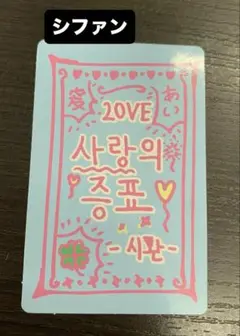 シファン
愛 あい
LOVE
사랑의
증표
-시판-